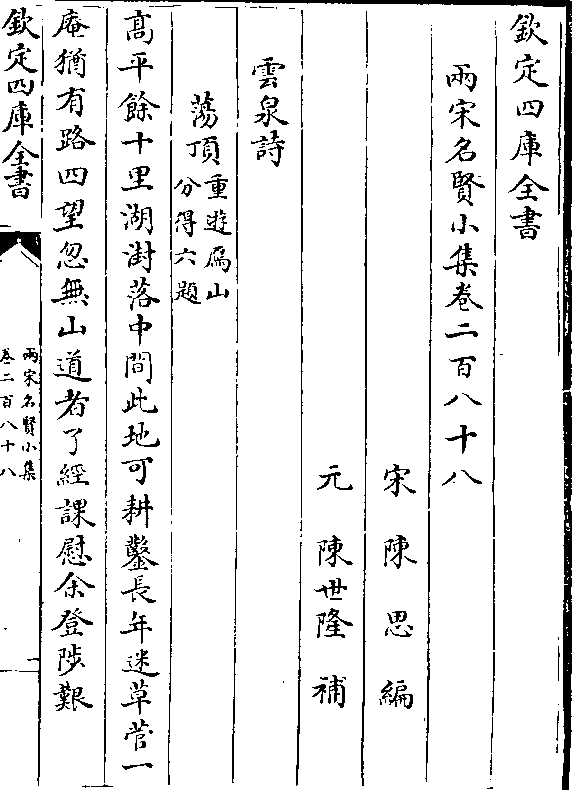 欽定四庫全書
兩宋名賢小集卷二百八十八
宋 陳思 編
元 陳世隆 補
雲泉詩
蕩頂 重遊鴈山
分得六題
髙平餘十里湖澍落中間此地可耕鑿長年迷草菅一
庵猶有路四望忽無山道者了經課慰余登陟艱
欽定四庫全書
兩宋名賢小集
卷二百八十八
一